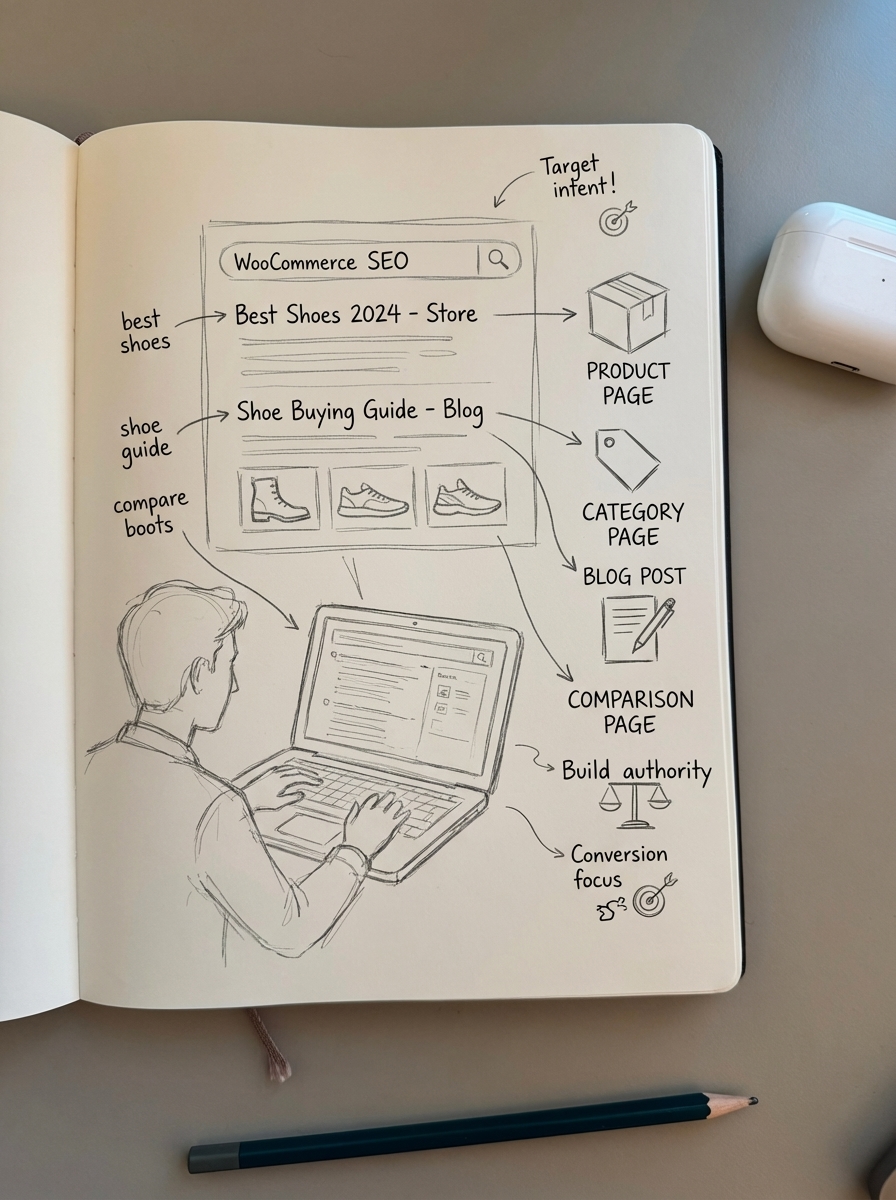 Target
intent!
WooCommerce SEO
best
shoes
Best Shoes 2024 - Store
PRODUCT
PAGE
shoe
guide
Shoe Buying Guide - Blog
compare
boots
CATEGORY
PAGE
BLOG POST
COMPARISON
PAGE
Build authority
Conversion
focus